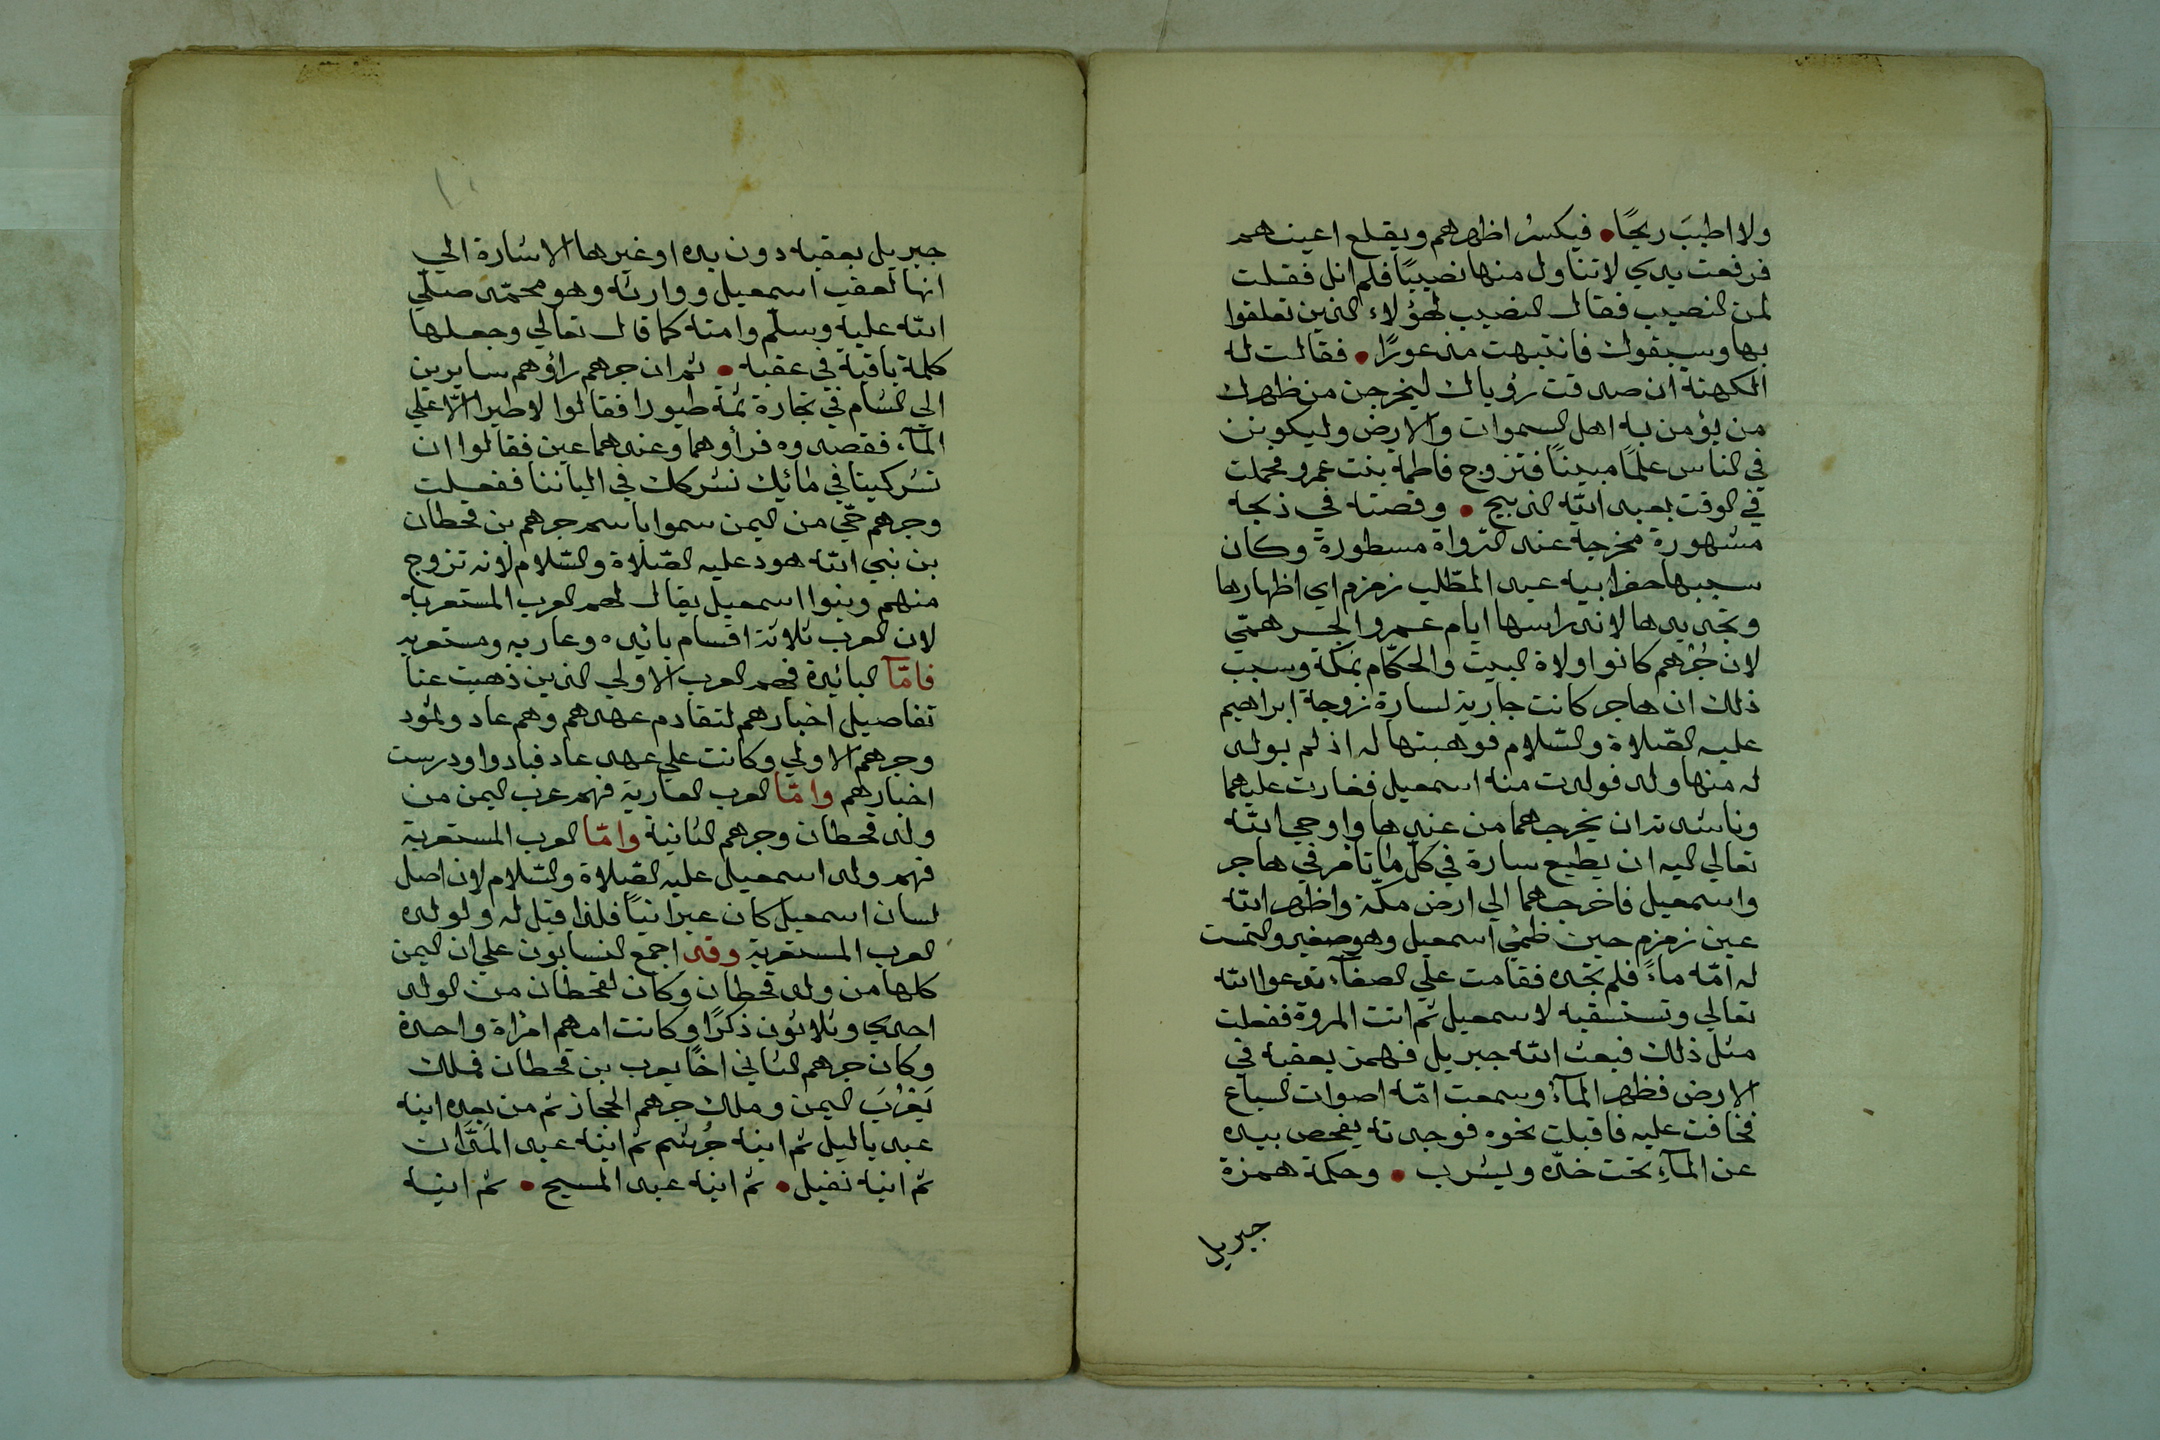 ولا اطيبَ ريحًا• فيكسرُ اظهرهم ويقلع اعينهم
فرفعت يدي لاتناول منها نصيبًا فلم انل فقلت
لمن النصيب فقال النصيب لهؤلاء الذين تعلقوا
بها وسبقوك فانتبهت مذعورًا• فقالت له
الكهنة ان صدقت رؤياك ليخرجن من ظهرك
من يؤمن به اهل السموات والارض وليكونن
في الناس علمًا مبينًا فتزوج فاطمة بنت عمرو فحملت
في الوقت بعبد الله الذبيح • وقصته في ذبحه
مشهورة مخرجة عند الرواة مسطورة وكان
سببها حفر ابيه عبد المطّلب زمزم اي اظهارها
وتجديدها لاندراسها ايام عمرو الجرهمّي
لان جُرْهم كانوا ولاة البيت والحكّام بمكّة وسبب
ذلك ان هاجر كانت جارية لسارة زوجة ابراهيم
عليه الصّلاة والسّلام فوهبتها له اذ لم يولد
له منها ولد فولدت منه اسمعيل فغارت عليهما
وناشدته ان يخرجهما من عندها واوحي الله
تعالي اليه ان يطيع سارة في كلّ ما تامر في هاجر
واسمعيل فاخرجهما الي ارض مكّة واظهر الله
عين زمزم حين ظمئ اسمعيل وهو صغير والتمست
له امّه ماءً فلم تجده فقامت علي الصفاء تدعوا الله
تعالي وتستسقيه لاسمعيل ثم اتت المروة ففعلت
مثل ذلك فبعث الله جبريل فهمز بعقبه في
الارض فظهر المآءُ وسمعت امّه اصوات السباع
فخافت عليه فاقبلت نحوه فوجدته يفحص بيده
عن المآءِ تحت خدّه ويشرب • وحكمة همزة
جبريل
١٠
جبريل بعقبه دون يده او غيرها الاشارة الي
انها لعقب اسمعيل ووارثه وهو محمّد صلّي
الله عليه وسلّم وامته كما قال تعالي وجعلها
كلمة باقية في عقبه • ثم ان جرهم راؤهم سايرين
الي الشام في تجارة ثمة طيورا فقالوا لا طير الّا علي
المآء فقصدوه فرأوهما وعندهما عين فقالوا ان
تشركينا في مائك نشركك في الباننا ففعلت
وجرهم حّي من اليمن سموا باسم جرهم بن قحطان
بن نبي الله هود عليه الصّلاة والسّلام لانه تزوج
منهم وبنوا اسمعيل يقال لهم العرب المستعربة
لان العرب ثلاثة اقسام بائده وعاربه ومستعربه
فامّآ البائدة فهم العرب الاولي الذين ذهبت عنا
تفاصيل اخبارهم لتقادم عهدهم وهم عاد وثمود
وجرهم الاولي وكانت علي عهد عاد فبادوا ودرست
اخبارهم وامّا العرب العاربة فهم عرب اليمن من
ولد قحطان وجرهم الثانية وامّا العرب المستعربة
فهم ولد اسمعيل عليه الصّلاة والسّلام لان اصل
لسان اسمعيل كان عبرانيًا فلذا قيل له ولولده
العرب المستعربة وقد اجمع النسابون علي ان اليمن
كلها من ولد قحطان وكان لقحطان من الولد
احدي وثلاثون ذكرًا وكانت امهم امرْاة واحدة
وكان جرهم الثاني اخًا يعرب بن قحطان فملك
يَعْرُبَ اليمن وملك جرهم الحجاز ثم من بعده ابنه
عبد ياليل ثم ابنه جُرْشم ثم ابنه عبد المَدَان
ثم ابنه نفيل• ثم ابنه عبد المسيح • ثم ابنه